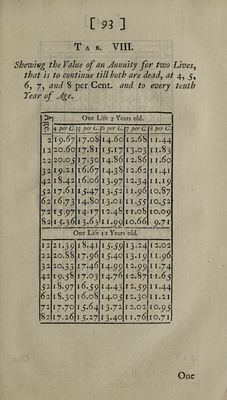 [ 93 ]
T A B. VIII.
Shewing the Value of an Annuity for two Lives,
that is to continue till both are dead, at 4, 5,
6, 7, and 8 per Cent. and to every tenth
Year of Age.
Age One Life 2 Years old.
4 per C. 5 per C. 6 per C. 7 per C. 8 per C.
2 19.67 17.08 14.60 12.68 11.44
12 20.60 17.81 15.17 13.03 11.83
22 20.05 17.30 14.86 12.86 11.60
32 19.21 16.67 14.38 12.62 11.41
42 18.42 16.06 13.97 12.34 11.19
52 17.61 15.47 13.52 11.96 10.87
62 16.73 14.80 13.01 11.55 10.52
72 15.97 14.17 12.48 11.08 10.09
82 15.36 13.63 11.99 10.66 9.71
One Life 12 Years old.
12 21.39 18.41 15.59 13.24 12.02
22 20.88 17.96 15.40 13.19 11.96
32 20.33 17.46 14.99 12.99 11.74
42 19.58 17.03 14.76 12.87 11.65
52 18.97 16.59 14.43 12.59 11.44
62 18.30 16.08 14.05 12.30 11.21
72 17.70 15.64 13.72 12.02 10.95
82 17.26 15.27 13.40 11.76 10.71
One